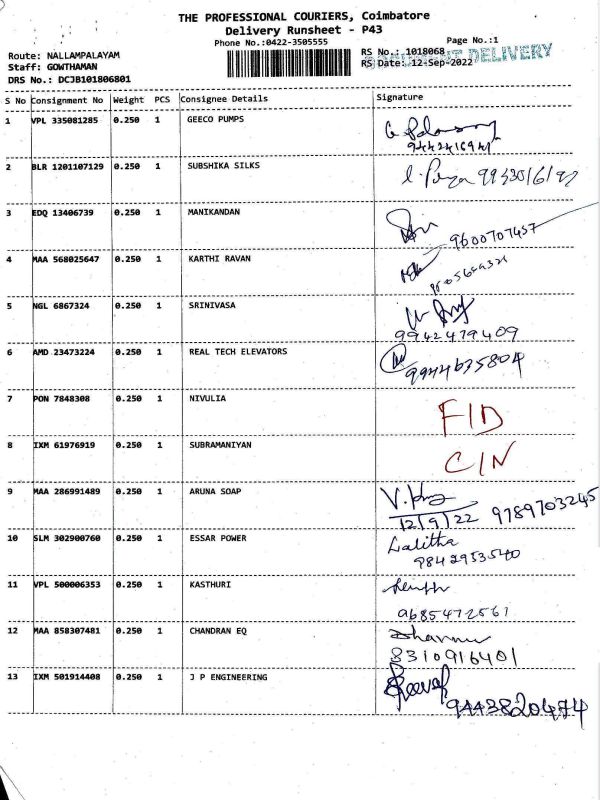 THE PROFESSIONAL COURIERS, Coimbatore
Delivery Runsheet - P43
Phone No.:0422-3505555
Page No.:1
Route: NALLAMPALAYAM
Staff: GOWTHAMAN
DRS No.: DCJB101806801
RS No.:1018068
RS Date: 12-Sep-2022
DELIVERY
S No Consignment No Weight PCS Consignee Details Signature
1 VPL 335081285 0.250 1 GEECO PUMPS
2 BLR 1201107129 0.250 1 SUBSHIKA SILKS
3 EDQ 13406739 0.250 1 MANIKANDAN
9600707457
4 MAA 568025647 0.250 1 KARTHI RAVAN
5 NGL 6867324 0.250 1 SRINIVASA
9942479409
6 AMD 23473224 0.250 1 REAL TECH ELEVATORS
9944635804
7 PON 7848308 0.250 1 NIVULIA
F/D
8 IXM 61976919 0.250 1 SUBRAMANIYAN
C/N
9 MAA 286991489 0.250 1 ARUNA SOAP
12/9/22 9789703245
10 SLM 302900760 0.250 1 ESSAR POWER
Lalitha
9842953540
11 VPL 500006353 0.250 1 KASTHURI
9685472561
12 MAA 858307481 0.250 1 CHANDRAN EQ
8310916401
13 IXM 501914408 0.250 1 J P ENGINEERING
9443820474